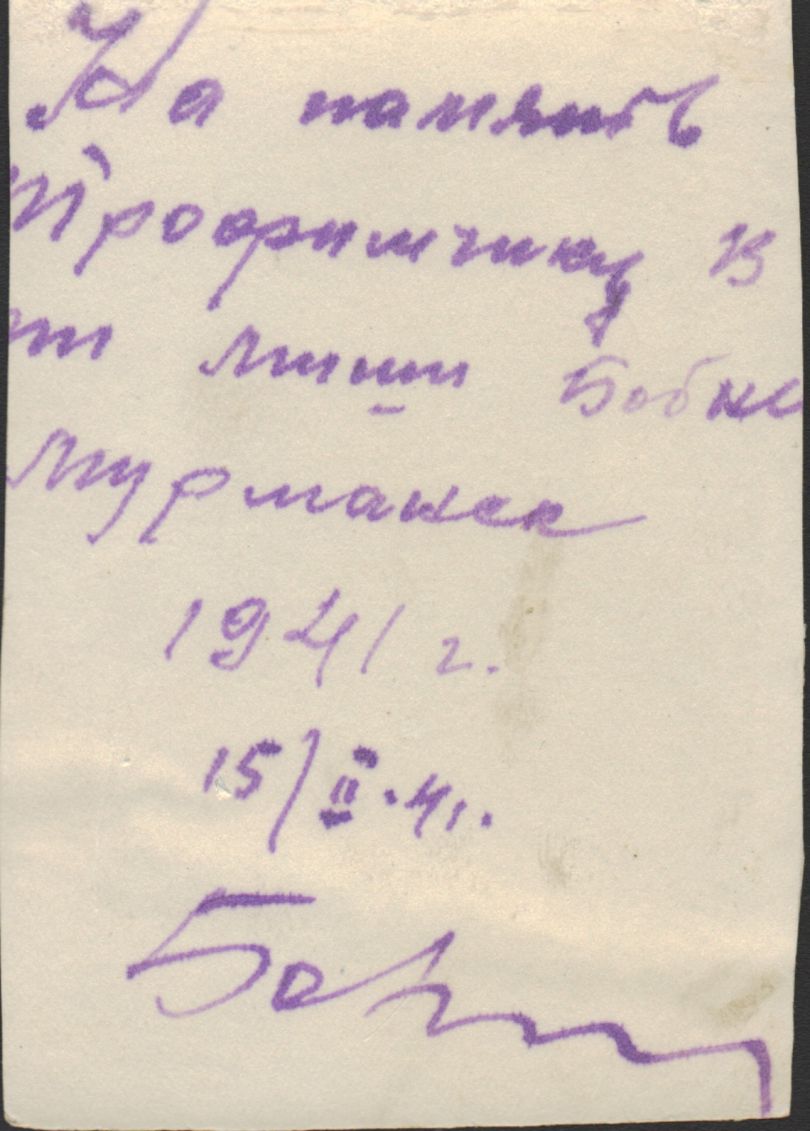 На память
Трофимчику В
от Миши Бобко
Мурманск
1941 г.
15/II.41.